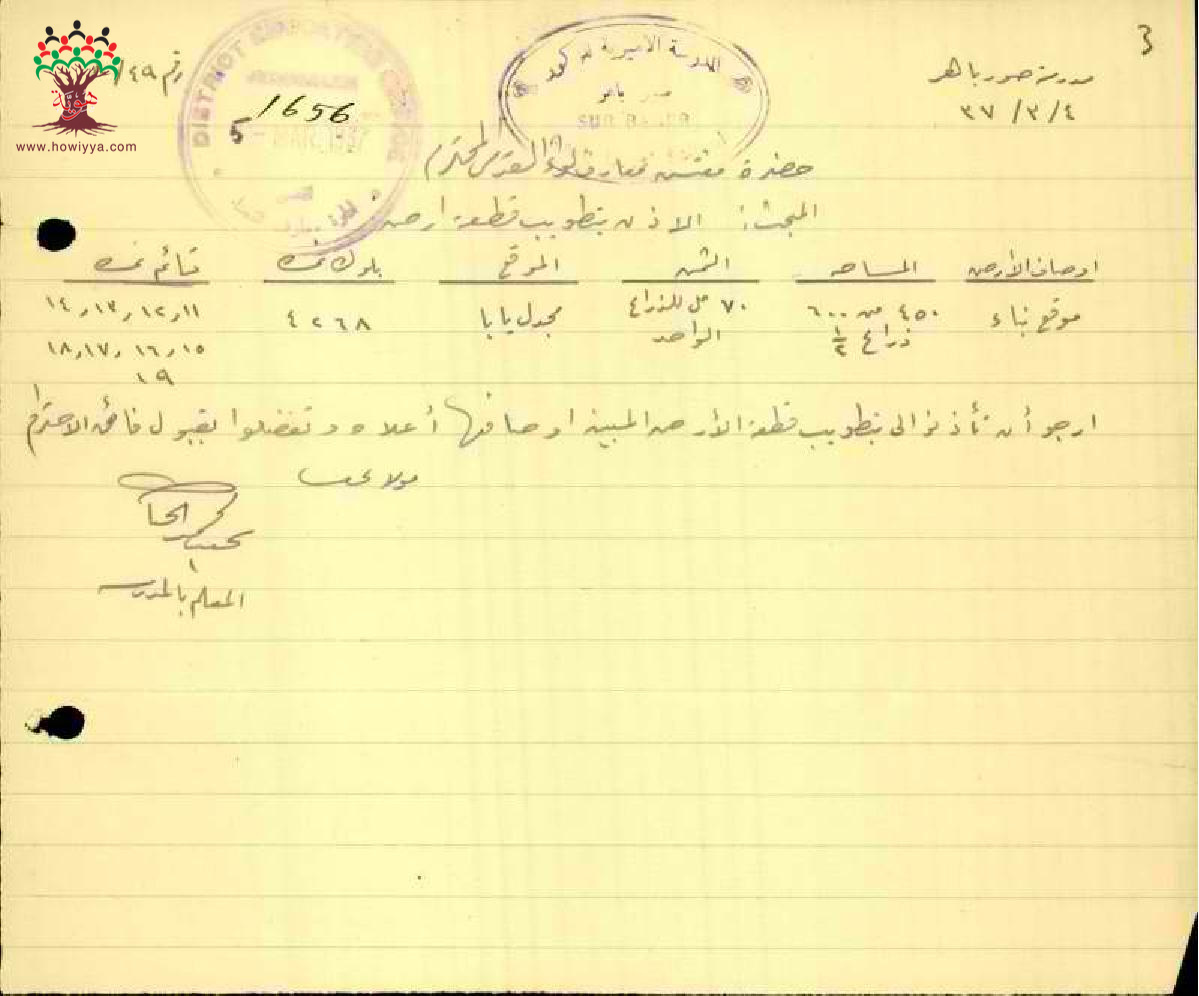 3
مدرسة صور باهر
٣٧/٣/٤
رقم ٤٩
هوية
www.howiyya.com
DISTRICT EDUCATION OFFICE
1656
5
المدرسة الاميرية للذكور
صور باهر
SUR BAHER
حضرة مفتش معارف لواء القدس المحترم
المبحث: الاذن بتطويب قطعة ارض
اوصاف الأرض المساحه الثمن الموقع بلوك نمرة قسائم نمرة
موقع بناء ٤٥٠ من ٦٠٠ ٧٠ مل للذراع مجدل يابا ٤٢٦٨ ١١,١٢,١٣,١٤
ذراع ½ الواحد ١٥,١٦,١٧,١٨
١٩
ارجو أن تأذنوا لي بتطويب قطعة الأرض المبينة اوصافها أعلاه وتفضلوا بقبول فائق الاحترام
مولاي
المعلم بالمدرسه